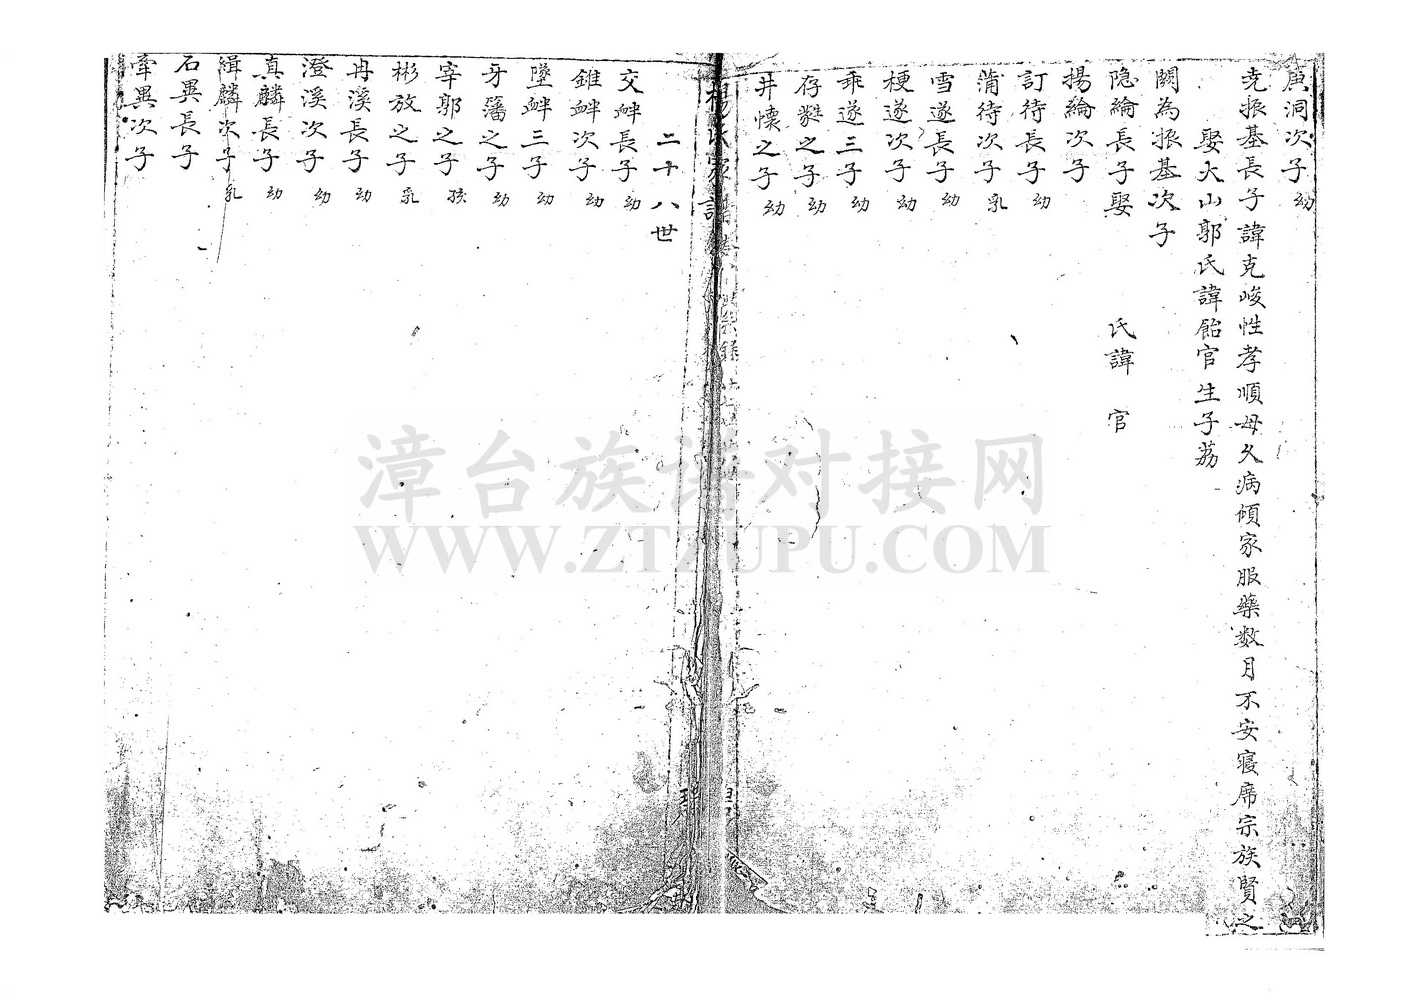 洞次子 幼
堯振基長子諱克峻性孝順母久病傾家服藥数月不安寢席宗族賢之
娶大山郭氏諱飴官生子荔
闗為振基次子
隐綸長子娶 氏諱 官
揚綸次子
訂待長子 幼
蒲待次子 乳
雪遂長子 幼
梗遂次子 幼
乘遂三子 幼
存㲠之子 幼
井懷之子 幼
楊氏家譜
二十八世
交衅長子 幼
錐衅次子 幼
墜衅三子 幼
牙藩之子 幼
宰郭之子 孩
彬放之子 乳
冉溪長子 幼
澄溪次子 幼
真麟長子 幼
緝麟次子 乳
石異長子
牽異次子
漳台族谱对接网
WWW.ZTZUPU.COM